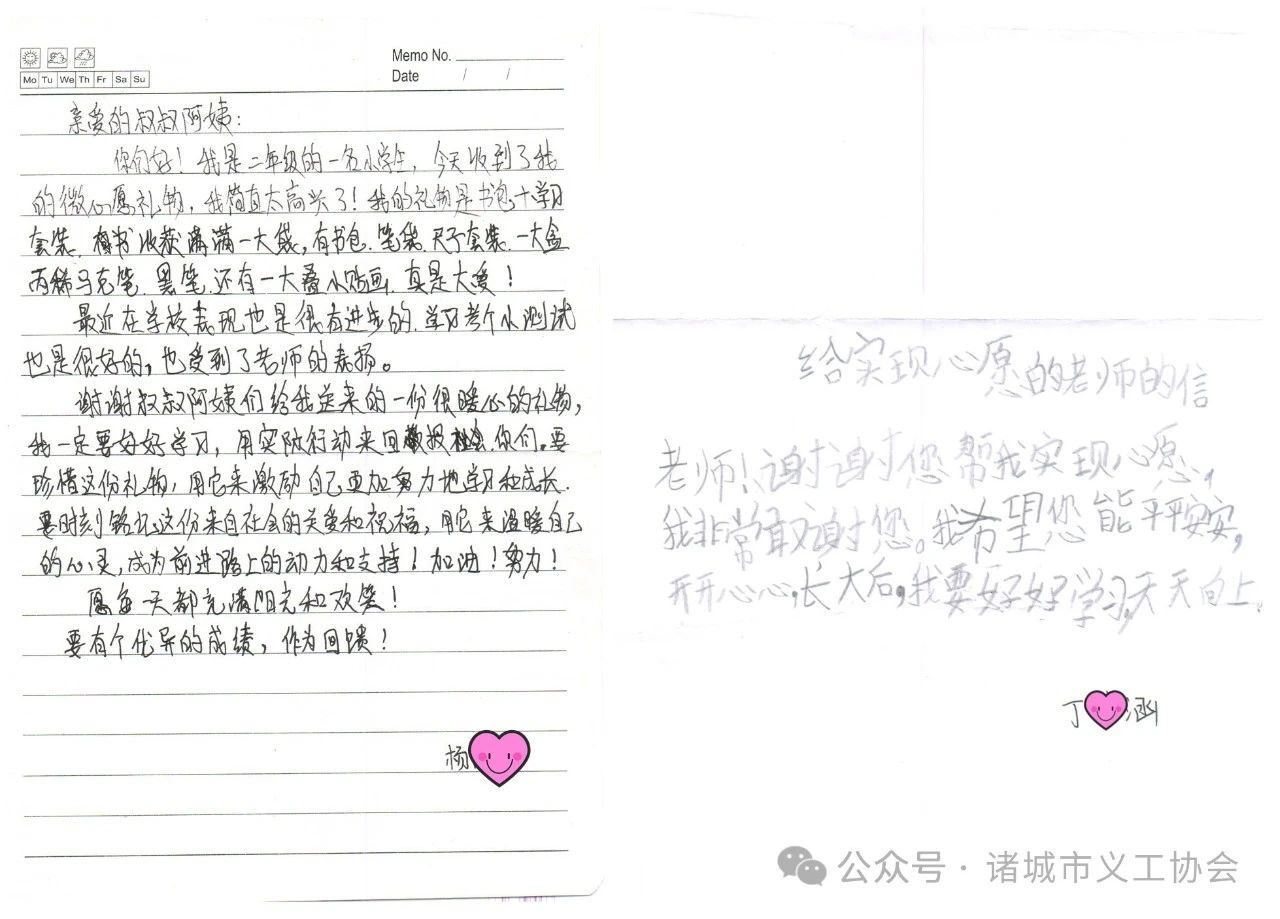 Memo No.
Mo Tu We Th Fr Sa Su
Date / /
亲爱的叔叔阿姨:
你们好！我是二年级的一名小学生，今天收到了我
的微心愿礼物，我简直太高兴了！我的礼物是书包+学习
套装，收获满满一大袋，有书包、笔袋、尺子套装、一大盒
丙稀马克笔、黑笔、还有一大叠小贴画，真是大爱！
最近在学校表现也是很有进步的，学习考个小测试
也是很好的，也受到了老师的表扬。
谢谢叔叔阿姨们给我送来的一份很暖心的礼物，
我一定要好好学习，用实际行动来回报社会、你们。要
珍惜这份礼物，用它来激励自己更加努力地学习和成长.
要时刻铭记这份来自社会的关爱和祝福，用它来温暖自己
的心灵，成为前进路上的动力和支持！加油！努力！
愿每一天都充满阳光和欢笑！
要有个优异的成绩，作为回馈！
杨
给实现心愿的老师的信
老师！谢谢您帮我实现心愿，
我非常谢您。我希望您能平平安安，
开开心心，长大后，我要好好学习，天天向上。
丁涵
公众号·诸城市义工协会